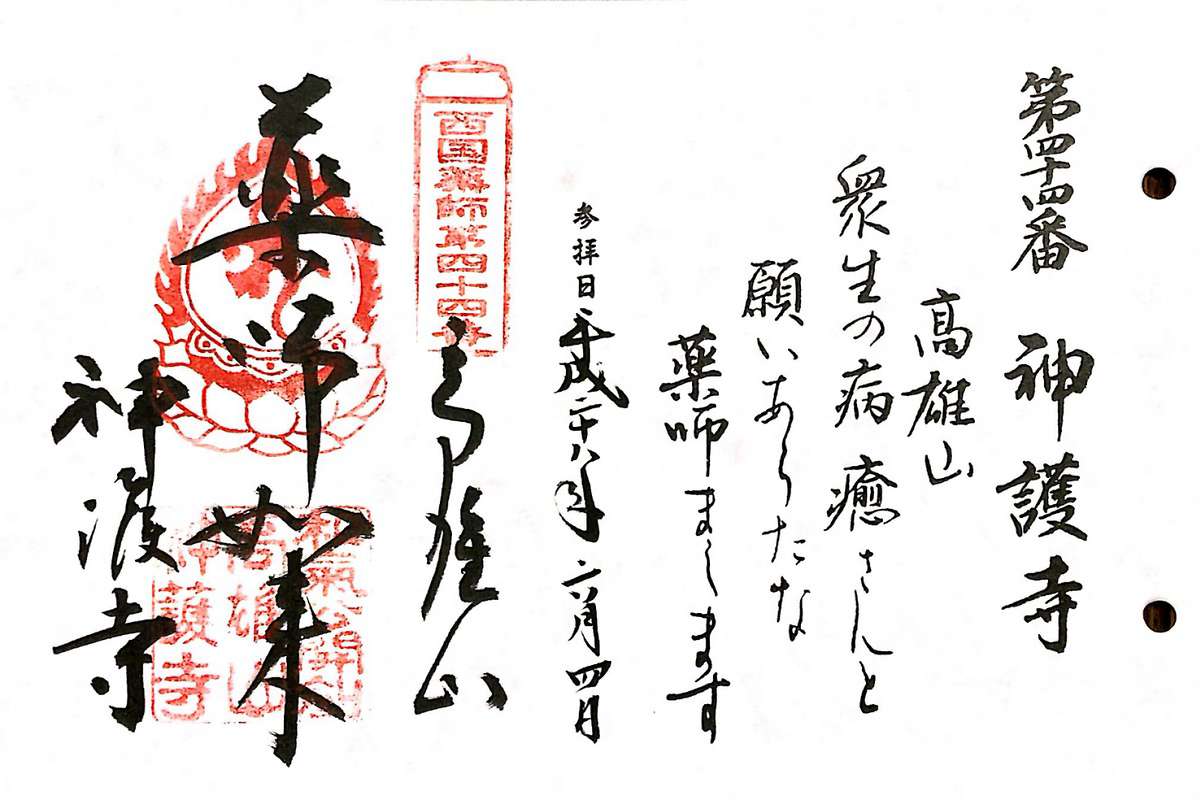 第四十四番 神護寺
高雄山
衆生の病癒さんと
願いあらたな
薬師まします
参拝日 平成二十八年六月四日
西国薬師第四十四番
高雄山
薬師如来
和氣公
高雄山
神護寺
神護寺